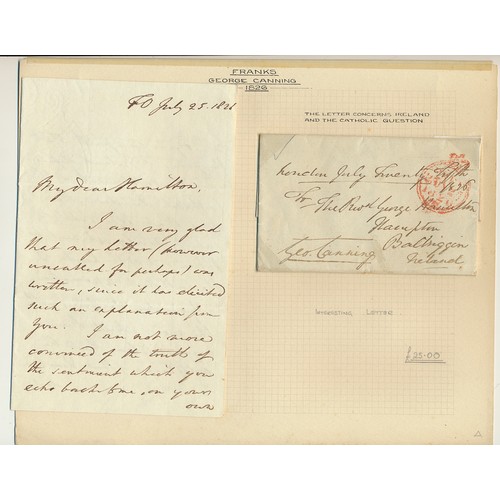 FRANKS
GEORGE CANNING
1826
THE LETTER CONCERNS IRELAND
AND THE CATHOLIC QUESTION
FO July 25. 1826
My dear Hamilton,
I am very glad
that my letter (however
uncalled for perhaps) was
written, since it has elicited
such an explanation from
you. I am not more
convinced of the truth of
the sentiment which you
echo back to me, on your
own
London July Twenty Fifth
1826
The Revd George Hamilton
Hampton
Balbriggin
Ireland.
Geo. Canning
INTERESTING LETTER
£25.00